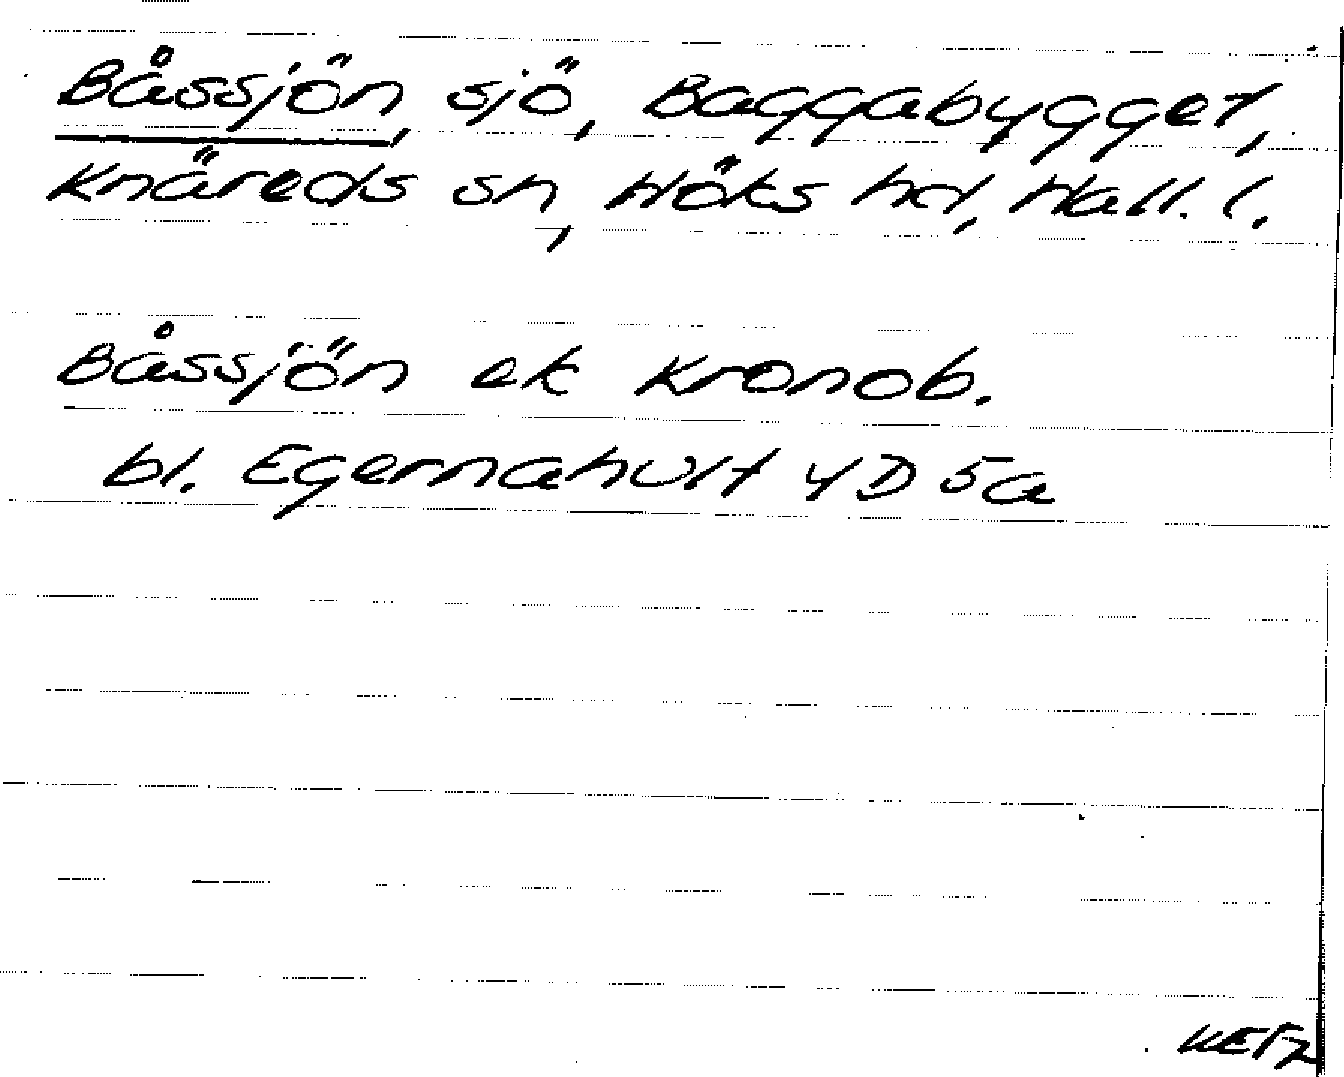 Båssjön, sjö, Baggabygget,
Knäreds sn, Höks hd, Hall. l.
Båssjön ek Kronob.
bl. Egernahult 4D 5a